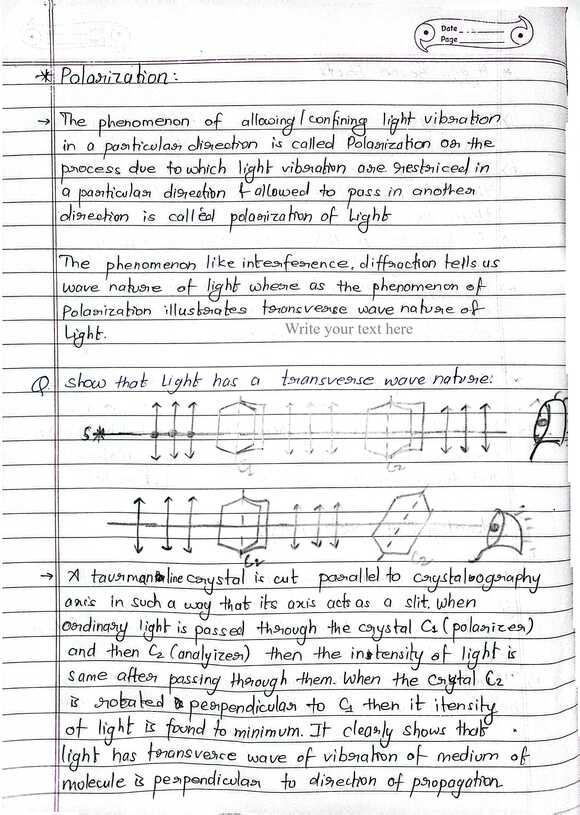 Date
Page
* Polarization:
→ The phenomenon of allowing/confining light vibration
in a particular direction is called Polarization or the
process due to which light vibration are restriced in
a particular direction & allowed to pass in another
direction is called polarization of Light
The phenomenon like interference, diffraction tells us
wave nature of light where as the phenomenon of
Polarization illustrates transverse wave nature of
Light.
Write your text here
Q show that Light has a transverse wave nature:
S*
C1 C2
C2 C2
→ A taurmaline crystal is cut parallel to crystalography
axis in such a way that its axis acts as a slit. When
ordinary light is passed through the crystal C1 (polarizer)
and then C2 (analyizer) then the intensity of light is
same after passing through them. When the crytal C2
is rotated perpendicular to C1 then it itensity
of light is found to minimum. It clearly shows that
light has transverce wave of vibration of medium of
molecule is perpendicular to direction of propagation